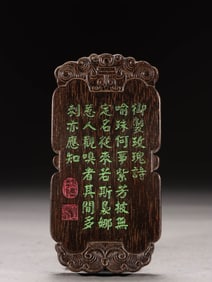 御製玫瑰詩
喻珠何事紫芳披無
定名從來若斯娜
惹人觀嗅者其間多
刺亦應知